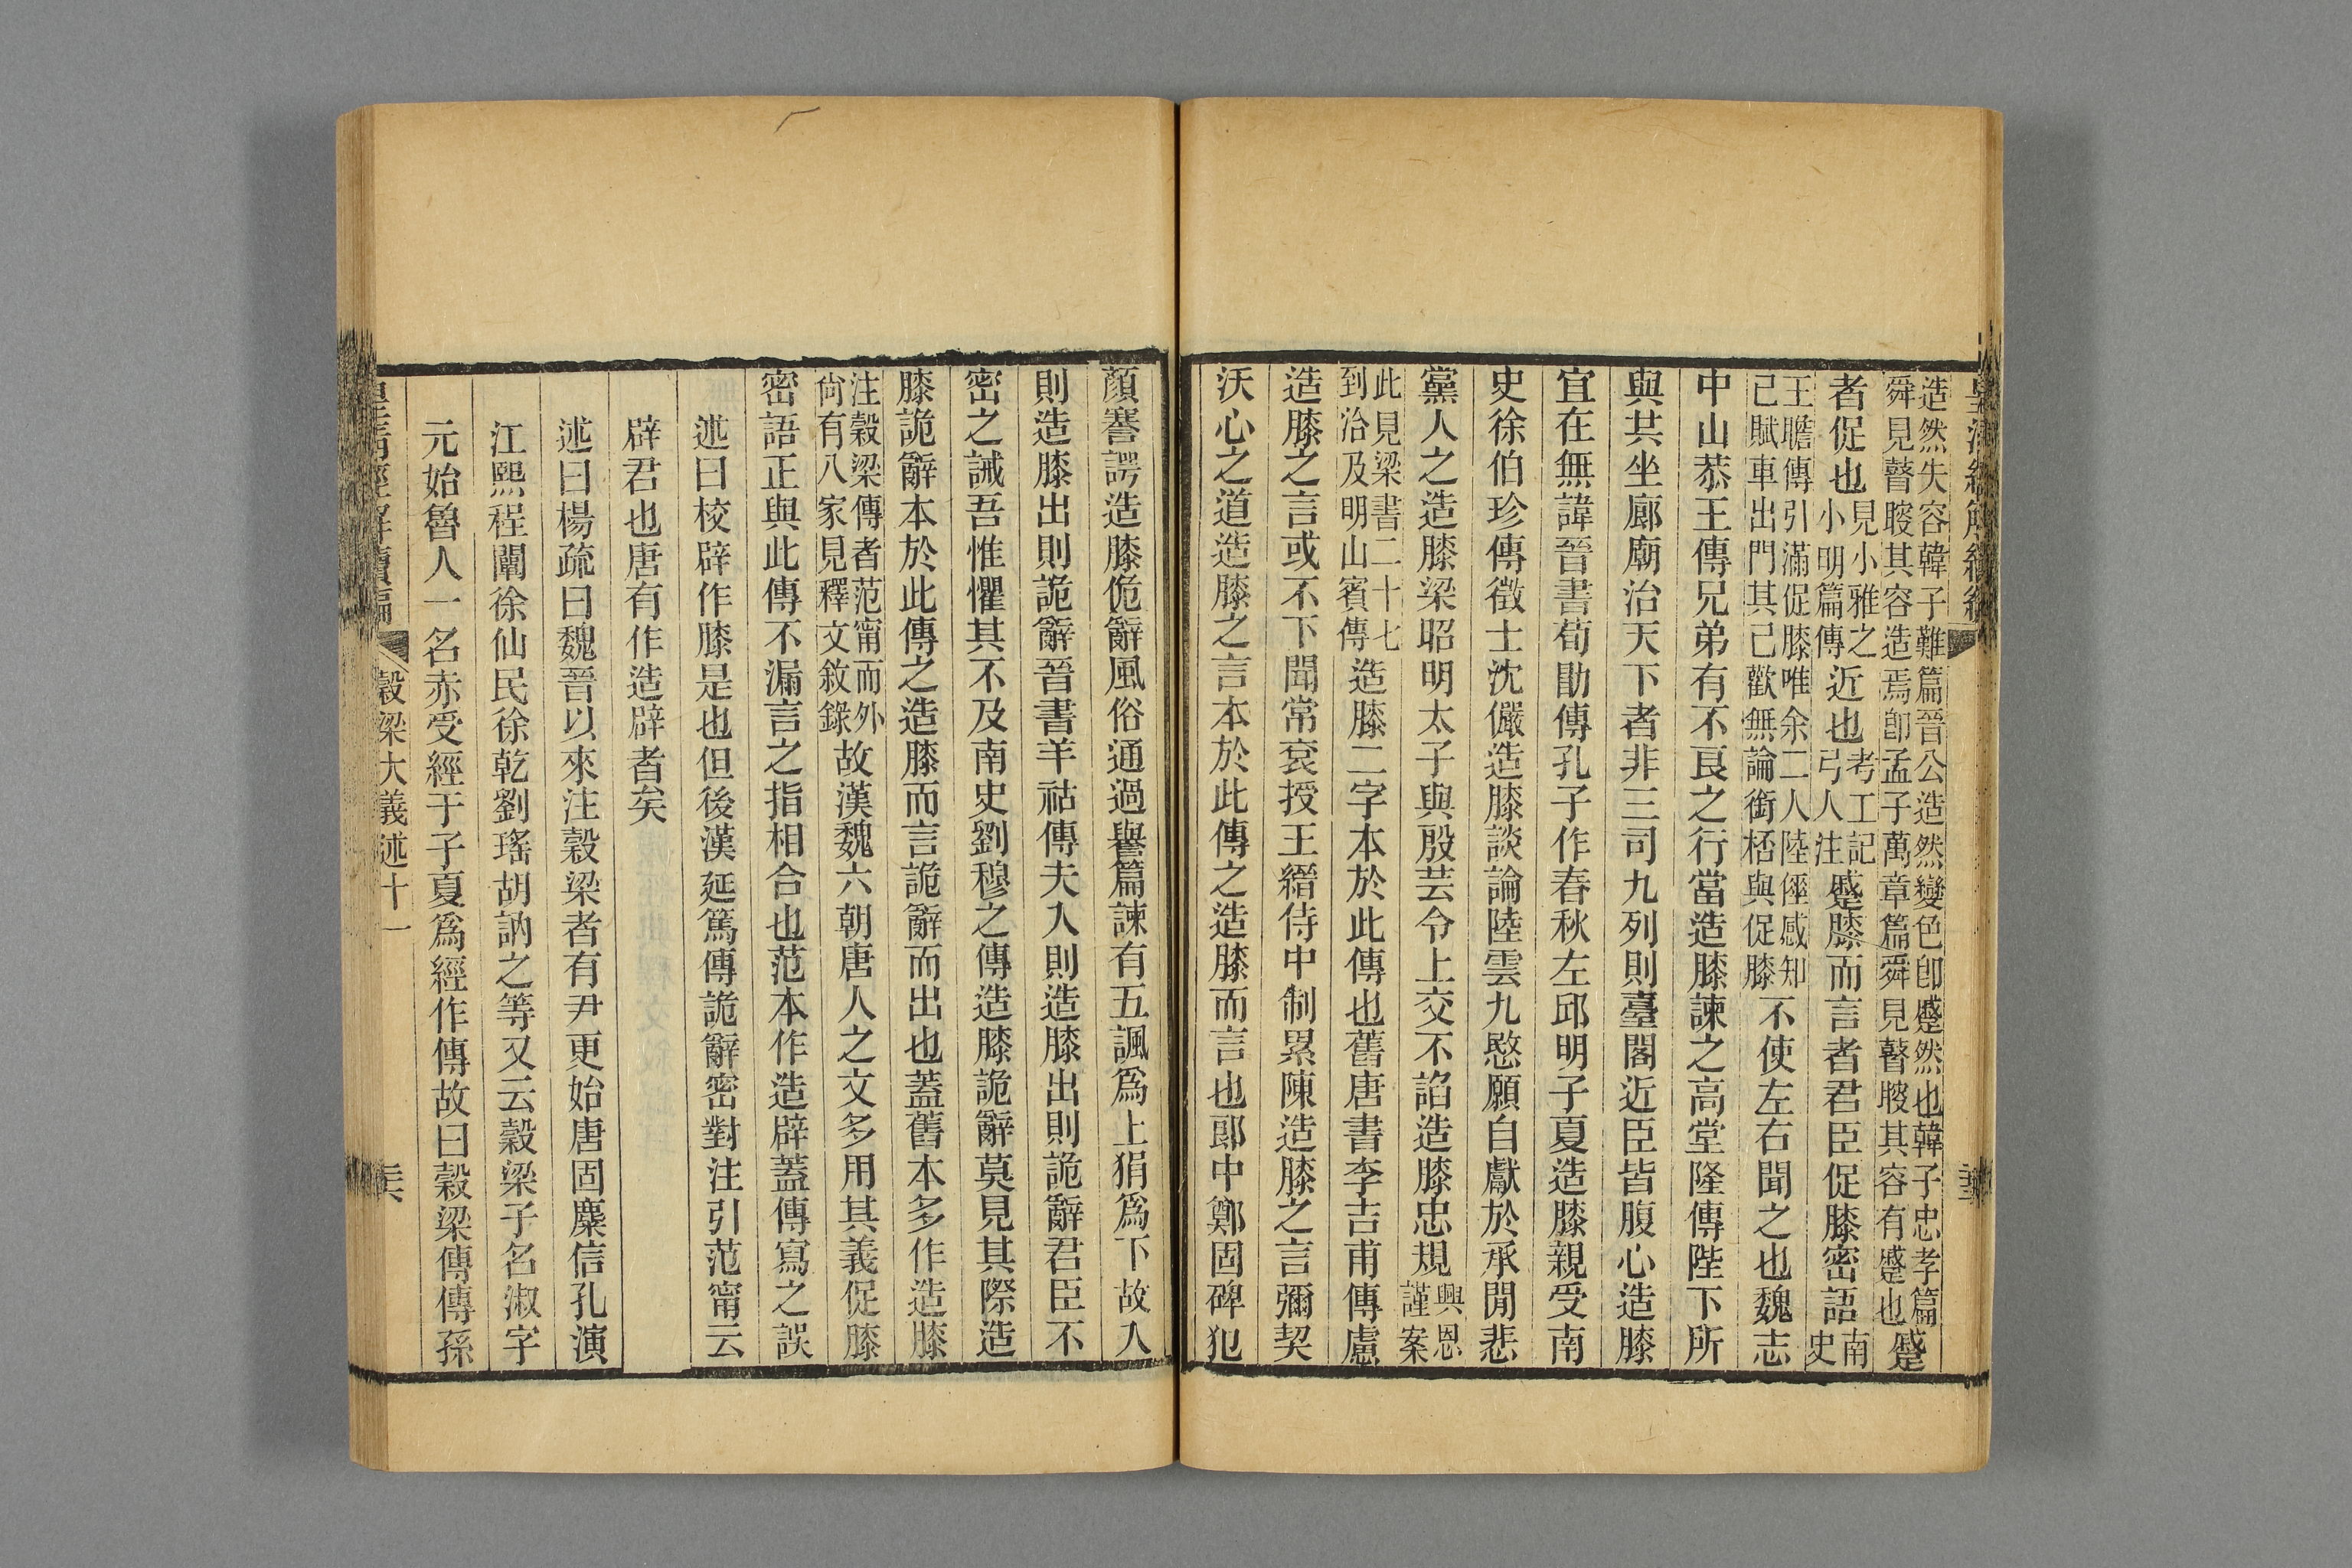 造然失容韓子難篇晉公造然變色卽蹙然也韓子忠孝篇
舜見瞽瞍其容造焉卽孟子萬章篇舜見瞽瞍其容有蹙也蹙
者促也見小雅之小明篇傳近也考工記弓人注蹙膝而言者君臣促膝密語南史
王瞻傳引滿促膝唯余二人陸倕感知己賦車出門其己歡無論銜桮與促膝不使左右聞之也魏志
中山恭王傳兄弟有不良之行當造膝諫之高堂隆傳陛下所
與其坐廊廟治天下者非三司九列則臺閣近臣皆腹心造膝
宜在無諱晉書荀勖傳孔子作春秋左邱明子夏造膝親受南
史徐伯珍傳徵士沈儼造膝談論陸雲九愍願自獻於承閒悲
黨人之造膝梁昭明太子與殷芸令上交不諂造膝忠規興恩謹案
此見梁書二十七到洽及明山賓傳造膝二字本於此傳也舊唐書李吉甫傳慮
造膝之言或不下聞常袞授王縉侍中制累陳造膝之言彌契
沃心之道造膝之言本於此傳之造膝而言也郎中鄭固碑犯
顏謇諤造膝佹辭風俗通過譽篇諫有五諷爲上狷爲下故入
則造膝出則詭辭晉書羊祜傳夫入則造膝出則詭辭君臣不
密之誡吾惟懼其不及南史劉穆之傳造膝詭辭莫見其際造
膝詭辭本於此傳之造膝而言詭辭而出也蓋舊本多作造膝
注穀梁傳者范甯而外尙有八家見釋文敘錄故漢魏六朝唐人之文多用其義促膝
密語正與此傳不漏言之指相合也范本作造辟蓋傳寫之誤
述曰校辟作膝是也但後漢延篤傳詭辭密對注引范甯云
辟君也唐有作造辟者矣
述曰楊疏曰魏晉以來注穀梁者有尹更始唐固麋信孔演
江熙程闡徐仙民徐乾劉瑤胡訥之等又云穀梁子名淑字
元始魯人一名赤受經于子夏爲經作傳故曰穀梁傳傳孫
皇淸經解續編
穀梁大義述十一